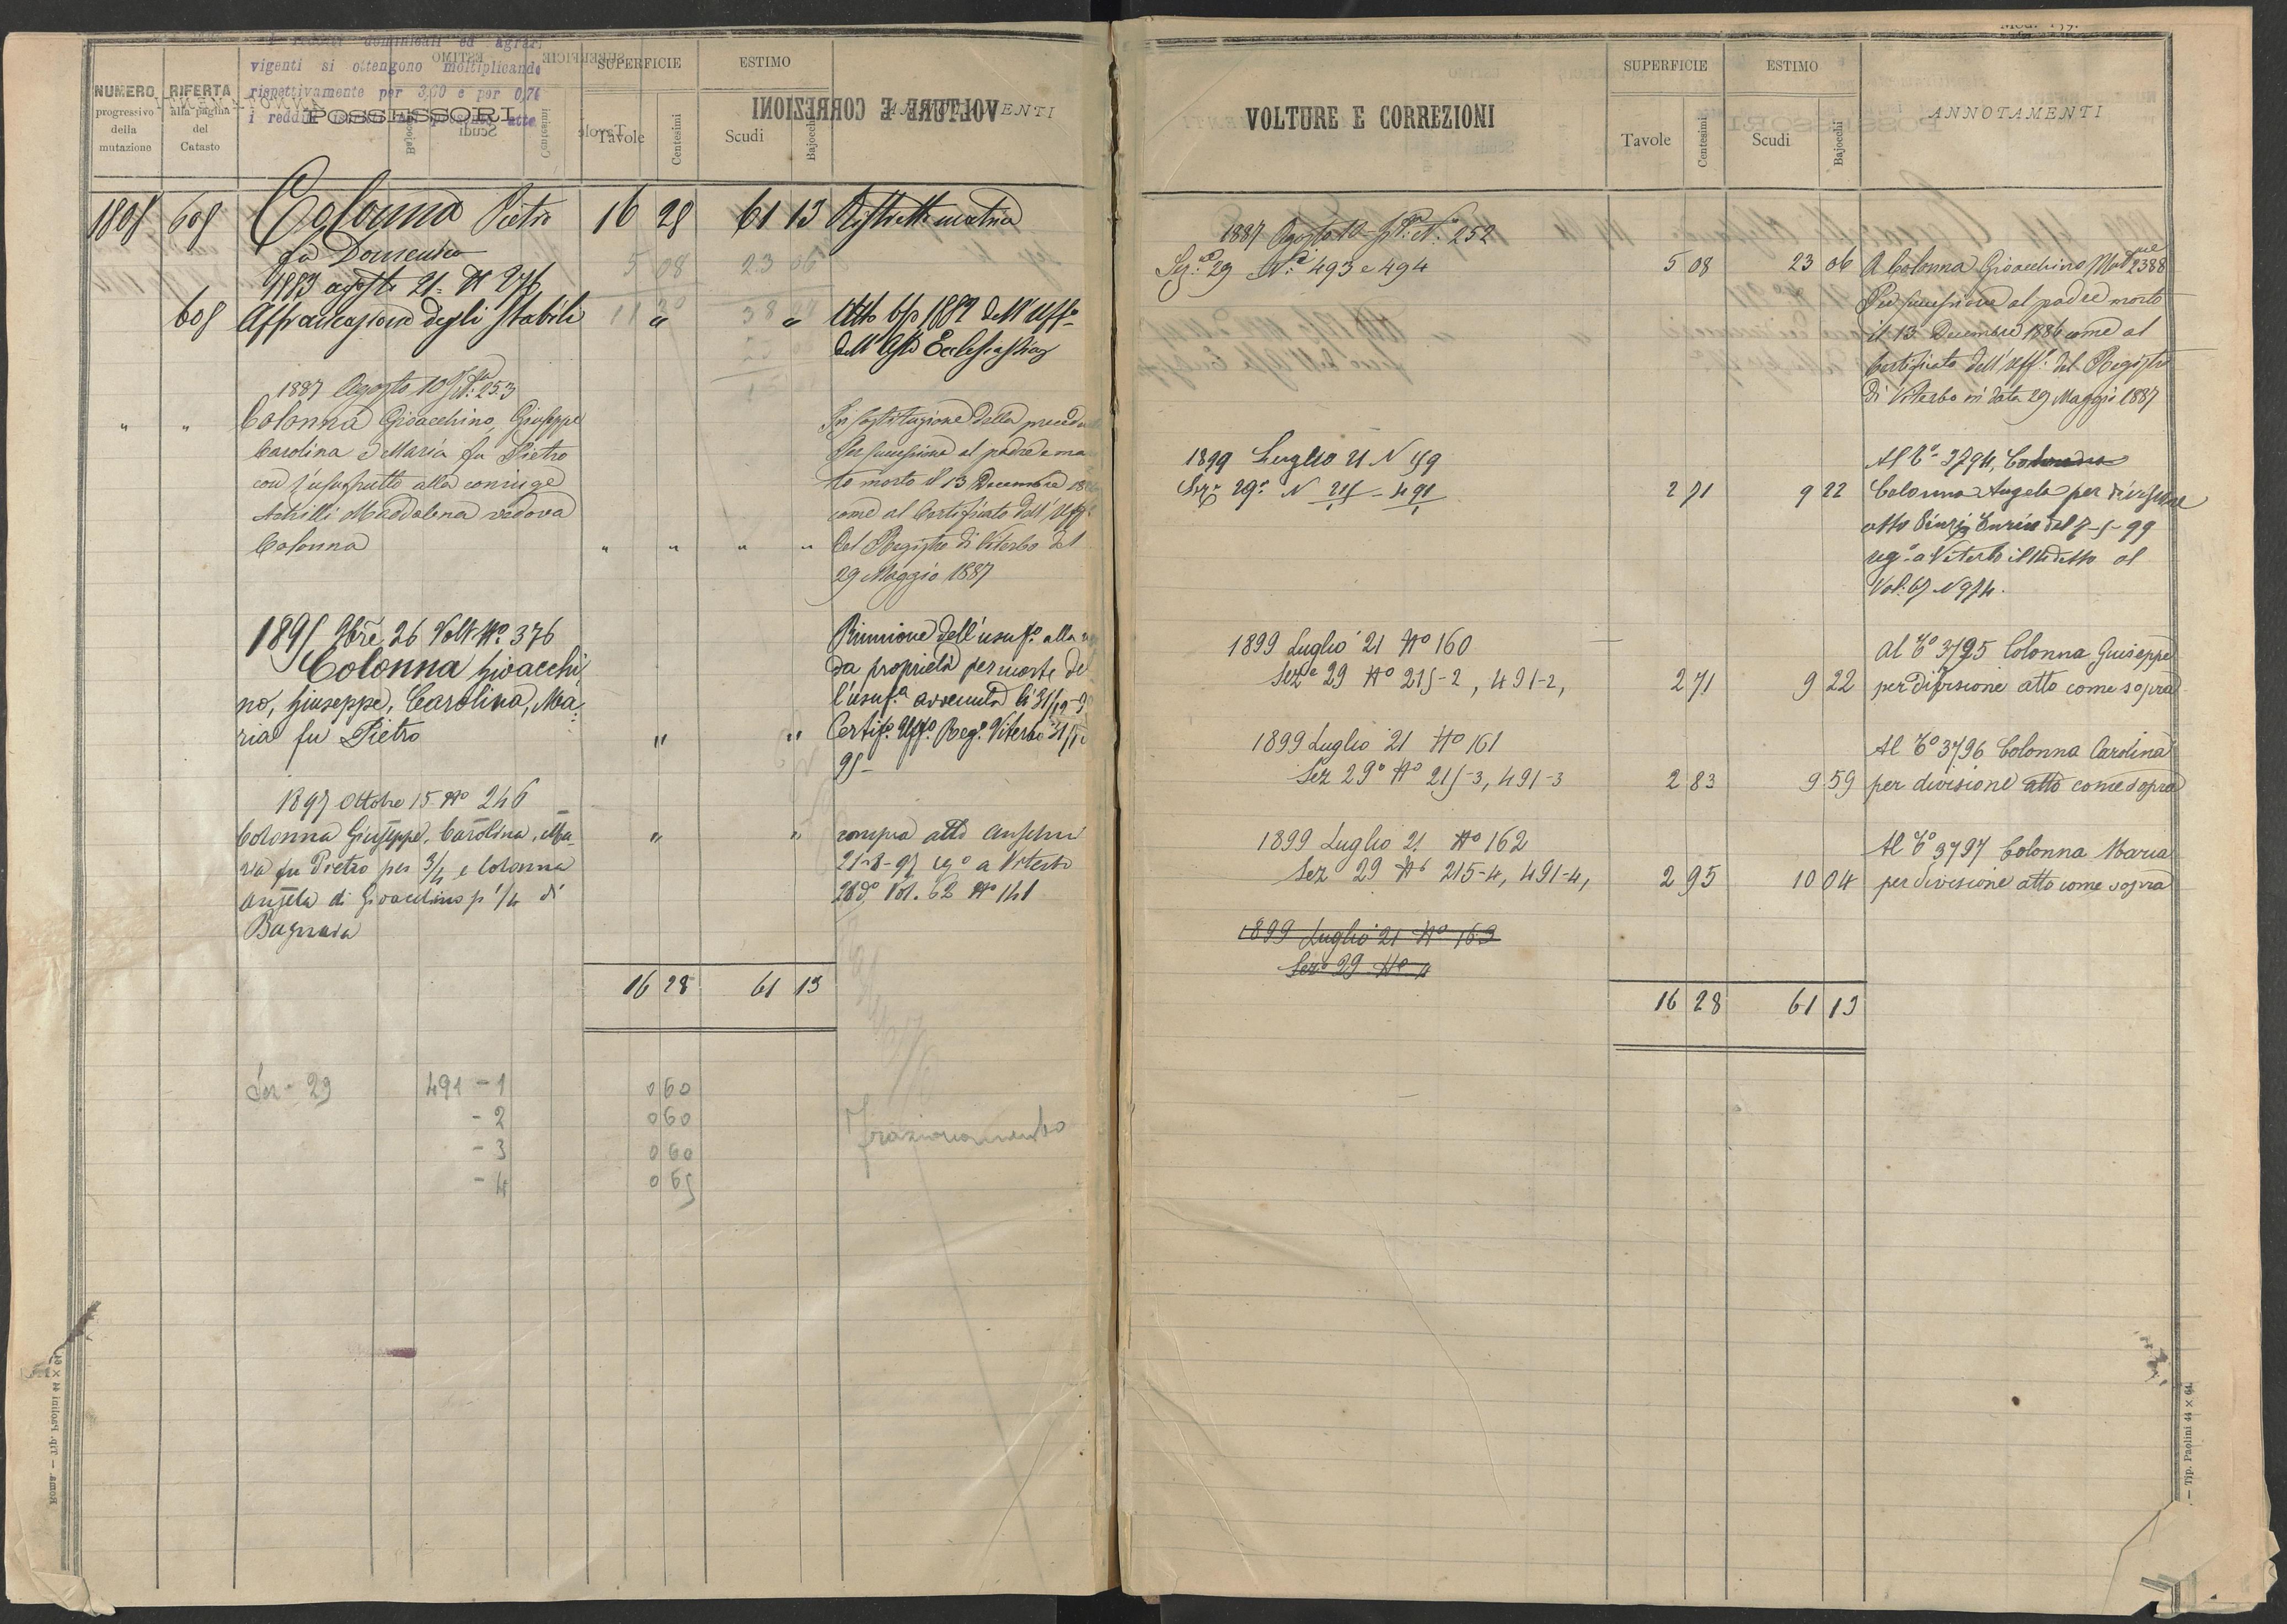 vigenti si ottengono moltiplicando
rispettivamente per 3,00 e per 0,74
NUMERO
progressivo
della
mutazione
RIFERTA
alla pagina
del
Catasto
POSSESSORI
SUPERFICIE
Tavole
Centesimi
ESTIMO
Scudi
Bajocchi
ANNOTAMENTI
608 Colonna Pietro 16 28 61 13 Ristretto matrice
fu Domenico 5 08 23 06
1883 agosto 21 N 276
608 Affrancazione degli Stabili " " Atto 1882 dell' Uff.
dell' Asse Ecclesiastico
1887 Agosto 10 253
" " Colonna Gioacchino, Giuseppe In sostituzione della
Carolina e Maria fu Pietro Per successione al padre e
con l'usufrutto alla coniuge morto il 13 Dicembre
Achilli Maddalena vedova come al Certificato dell' Uff.
Colonna " " " " del Registro di Viterbo del
29 Maggio 1887
1895 9bre 26 Volt. No. 376 Riunione dell'usuf.o alla
Colonna Gioacchi da proprietà per morte
no, Giuseppe, Carolina, Ma- l'usuf.a avvenuta li
ria fu Pietro " " Certif.o Uff.o Reg.o Viterbo
95
1897 Ottobre 15 No 246
Colonna Giuseppe, Carolina, Ma- " " compra atto Anselmi
ria fu Pietro per 3/4 e Colonna 21-8-97 a Viterbo
Angela di Gioacchino p 1/4 di Vol. 62 No 141
Bagnaia
16 28 61 13
Sez 29 491 - 1 0 60
- 2 0 60
- 3 0 60 frazionamento
- 4 0 65
Roma. — Tip. Paolini 44 × 64.
VOLTURE E CORREZIONI
SUPERFICIE
Tavole
Centesimi
ESTIMO
Scudi
Bajocchi
ANNOTAMENTI
1887 Agosto 10 N. 252
Sez. 29 N. 493 e 494 5 08 23 06 A Colonna Gioacchino 2388
Per successione al padre morto
il 13 Decembre 1886 come al
Certificato dell' Uff. del Registro
di Viterbo in data 29 Maggio 1887
1899 Luglio 21 N 159 Al 3794, Colonna
Sez. 29 N 215/1 - 491/1 2 71 9 22 Colonna Angela per divisione
atto Enrico del 99
reg. a Viterbo il al
Vol. 67 N 974.
1899 Luglio 21 No 160 Al 3795 Colonna Guiseppe
Sez 29 No 215-2, 491-2, 2 71 9 22 per divisione atto come sopra
1899 Luglio 21 No 161 Al 3796 Colonna Carolina
Sez 29 No 215-3, 491-3 2 83 9 59 per divisione atto come sopra
1899 Luglio 21 No 162 Al 3797 Colonna Maria
Sez 29 No 215-4, 491-4, 2 95 10 04 per divisione atto come sopra
1899 Luglio 21 No 163
Sez 29 No
16 28 61 13
— Tip. Paolini 44 × 64.